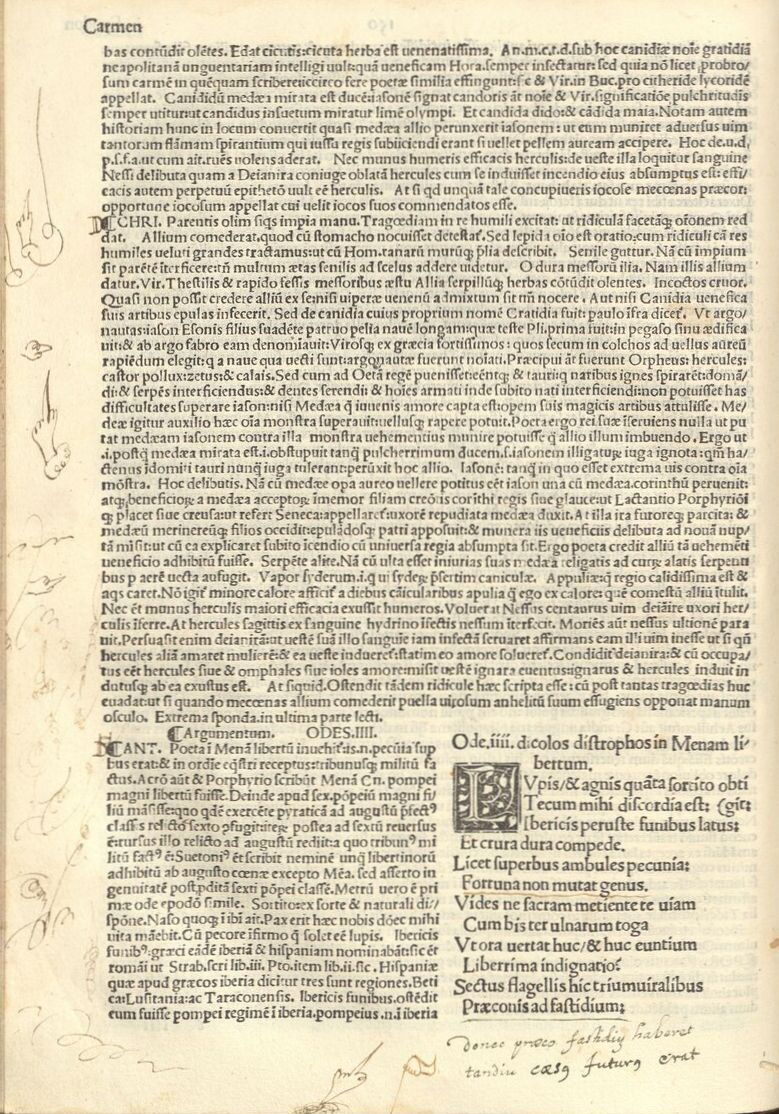 Carmen
bas contūdit olētes. Edat cicutis: cicuta herba est uenenatissima. An.m.c.t.d. sub hoc canidiæ noīe gratidiā
neapolitanā unguentariam intelligi uult: quā ueneficam Hora. semper insectatur: sed quia nō licet probro/
sum carmē in quēquam scribere: iccirco fere poetæ similia effingunt: sic & Vir. in Buc. pro citheride lycoridē
appellat. Canididū medæa mirata est ducē: iasonē signat candoris āt noīe & Vir. significatiōe pulchritudīs
semper utitur: ut candidus insuetum miratur limē olympi. Et candida dido: & cādida maia. Notam autem
historiam hunc in locum conuertit quasi medæa allio perunxerit iasonem: ut eum muniret aduersus uim
tantorum flāmam spirantium qui iussu regis subiiciendi erant si uellet pellem auream accipere. Hoc de.u.d.
p.s.f.a. ut cum ait. rues uolens aderat. Nec munus humeris efficacis herculis: de ueste illa loquitur sanguine
Nessi delibuta quam a Deianira coniuge oblatā hercules cum se induisset incendio eius absumptus est: effi/
cacis autem perpetuū epithetō uult eē herculis. At si qd unquā tale concupiueris iocose mecœnas præcor:
opportune iocosum appellat cui uelit iocos suos commendatos esse.
CHRI. Parentis olim siqs impia manu. Tragœdiam in re humili excitat: ut ridiculā facetāq; orōnem red
dat. Allium comederat, quod cū stomacho nocuisset detestaf. Sed lepida oīo est oratio: cum ridiculi cā res
humiles ueluti grandes tractamus: ut cū Hom. ranarū murūq; plia describit. Senile guttur. Nā cū impium
sit parētē īterficere: tn̄ multum ætas senilis ad scelus addere uidetur. O dura messorū ilia. Nam illis allium
datur. Vir. Thestilis & rapido fessis messoribus æstu Allia serpillūq; herbas cōtūdit olentes. Incoctos cruor.
Quasi non possit credere alliū ex se: nisi uiperæ uenenū admixtum sit tm̄ nocere. Aut nisi Canidia uenefica
suis artibus epulas infecerit. Sed de canidia cuius proprium nomē Cratidia fuit: paulo īfra dicef. Vt argo/
nautas: iason Esonis filius suadēte patruo pelia nauē longam: quæ teste Pli. prima fuit: in pegaso sinu ædifica
uit: & ab argo fabro eam denomīauit: Virosq; ex græcia fortissimos: quos secum in colchos ad uellus aureū
rapiēdum elegit: q a naue qua uecti sunt: argonautæ fuerunt noīati. Præcipui āt fuerunt Orpheus: hercules:
castor pollux: zetus: & calais. Sed cum ad Oetā regē puenisset: eēntq; & tauri: q naribus ignes spirarēt: domā/
di: & serpēs interficiendus: & dentes serendi: & hoies armati inde subito nati interficiendi: non potuisset has
difficultates superare iason: nisi Medæa q iuuenis amore capta est: opem suis magicis artibus attulisse. Me/
deæ igitur auxilio hæc oīa monstra superauit: uellusq; rapere potuit. Poeta ergo rei suæ īseruiens nulla ut pu
tat medæam iasonem contra illa monstra uehementius munire potuisse q̄ allio illum imbuendo. Ergo ut
.i. postq̄ medæa mirata est .i. obstupuit tanq̄ pulcherrimum ducem .s. iasonem illigatur iuga ignota: qm̄ ha/
ctenus īdomiti tauri nunq̄ iuga tulerant: perūxit hoc allio. Iasonē: tanq̄ in quo esset extrema uis contra oīa
mōstra. Hoc delibutis. Nā cū medæe opa aureo uellere potitus eēt iason una cū medæa. corinthū peruenit:
atq; beneficiorum a medæa acceptorum īmemor filiam creōis corīthi regis siue glauce: ut Lactantio Porphyriōī
q; placet siue creusa: ut refert Seneca: appellaref: uxorē repudiata medæa duxit. At illa ira furoreq; parcita: &
medæū merinereūq; filios occidit: epulādosq; patri apposuit: & munera iis ueneficiis delibuta ad nouā nup/
tā misit: ut cū ea explicaret subito īcendio cū uniuersa regia absumpta sit. Ergo poeta credit alliū tā uehemēti
ueneficio adhibitū fuisse. Serpēte alite. Nā cū ulta esset iniurias suas medæa religatis ad currum alatis serpenti
bus p aerē uecta aufugit. Vapor syderum .i. q ui syderum p̄sertim caniculæ. Appuliæ: q regio calidissima est &
aqs caret. Nō igit minore calore afficit a diebus cāicularibus apulia q̄ ego ex calore: quē comestū alliū ītulit.
Nec ēt munus herculis maiori efficacia exussit humeros. Voluerat Nessus centaurus uim deianire uxori her/
culis īferre. At hercules sagittis ex sanguine hydrino īfectis nessum īterfecit. Moriēs aūt nessus ultionē para
uit. Persuasit enim deianirā: ut uestē suā illo sanguīe iam infectā seruaret affirmans eam illi uim inesse ut si qn̄
hercules aliā amaret mulierē: & ea ueste indueref: statim eo amore solueref. Condidit deianira: & cū occupa/
tus eēt hercules siue & omphales siue ioles amore: misit uestē ignara euentus: ignarus & hercules induit in
dutusq; ab ea exustus est. At siquid. Ostendit tādem ridicule hæc scripta esse: cū post tantas tragœdias huc
euadat: ut si quando mecœnas allium comederit puella uirosum anhelitū suum effugiens opponat manum
osculo. Extrema sponda. in ultima parte lecti.
Argumentum. ODES.IIII.
CANT. Poeta ī Menā libertū inuehit: is .n. pecūia sup
bus erat: & in ordīe eqstri receptus: tribunusq; militū fa
ctus. Acrō aūt & Porphyrio scribūt Menā Cn. pompei
magni libertū fuisse. Deinde apud sex. pōpeiū magni fi/
liū māsisse: quo qdē exercēte pyraticā ad augustū p̄fectꝰ
classis relicto sexto pfugit: iterum postea ad sextū reuersus
ē: rursus illo relicto ad augustū rediit: a quo tribunꝰ mi
litū factꝰ ē: Suetoniꝰ ēt scribit neminē unq̄ libertinorū
adhibitū ab augusto cœnæ excepto Mēa. sed asserto in
genuitatē post pditā sexti pōpei classē. Metrū uero ē pri
mæ ode epodō simile. Sortito: ex sorte & naturali di/
spōne. Naso quoq; ī ibī ait. Pax erit hæc nobis dōec mihi
uita māebit. Cū pecore īfirmo q̄ solet eē lupis. Ibericis
funibꝰ: græci eādē iberiā & hispaniam nominabāt: sic ēt
romāi ut Strab. scri lib. iii. Pto. item lib. ii. sic. Hispaniæ
quæ apud græcos iberia dicitur tres sunt regiones. Beti
ca: Lusitania: ac Taraconensis. Ibericis funibus. ostēdit
eum fuisse pompei regimē ī iberia. pompeius .n. ī iberia
Ode.iiii. dicolos distrophos in Menam li/
bertum.
LVpis/& agnis quāta sortito obti
Tecum mihi discordia est: (git:
Ibericis peruste funibus latus:
Et crura dura compede.
Licet superbus ambules pecunia:
Fortuna non mutat genus.
Vides ne sacram metiente te uiam
Cum bis ter ulnarum toga
Vt ora uertat huc/& huc euntium
Liberrima indignatio?
Sectus flagellis hic triumuiralibus
Præconis ad fastidium:
Donec præco fastidiū haberet
tandiu cæsꝰ futurꝰ erat